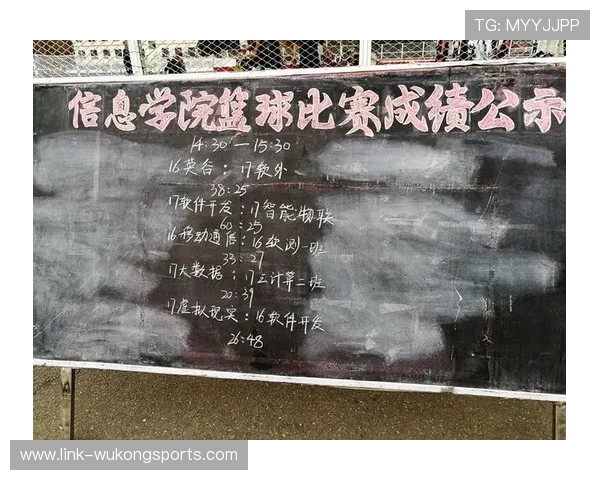 TG: MYYJJPP
信息学院篮球比赛成绩公示
14:30—15:30
16英合：17软外
38:25
17软件开发：17智能物联
60:25
16移动通信：16软测一班
33:27
17大数据：17云计算二班
20:39
17虚拟现实：16软件开发
26:48
www.link-wukongsports.com/